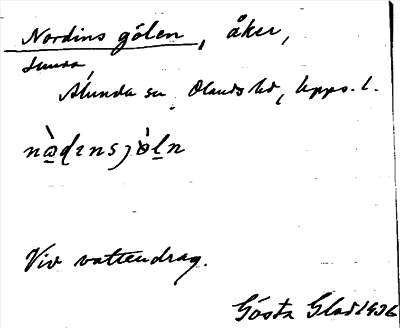 Nordins gölen, åker,
Sunda
Alunda sn Olands hd, Upps. l.
nὼ̱ḍınsȷò̵l̠n
Vid vattendrag.
Gösta Glad 1936